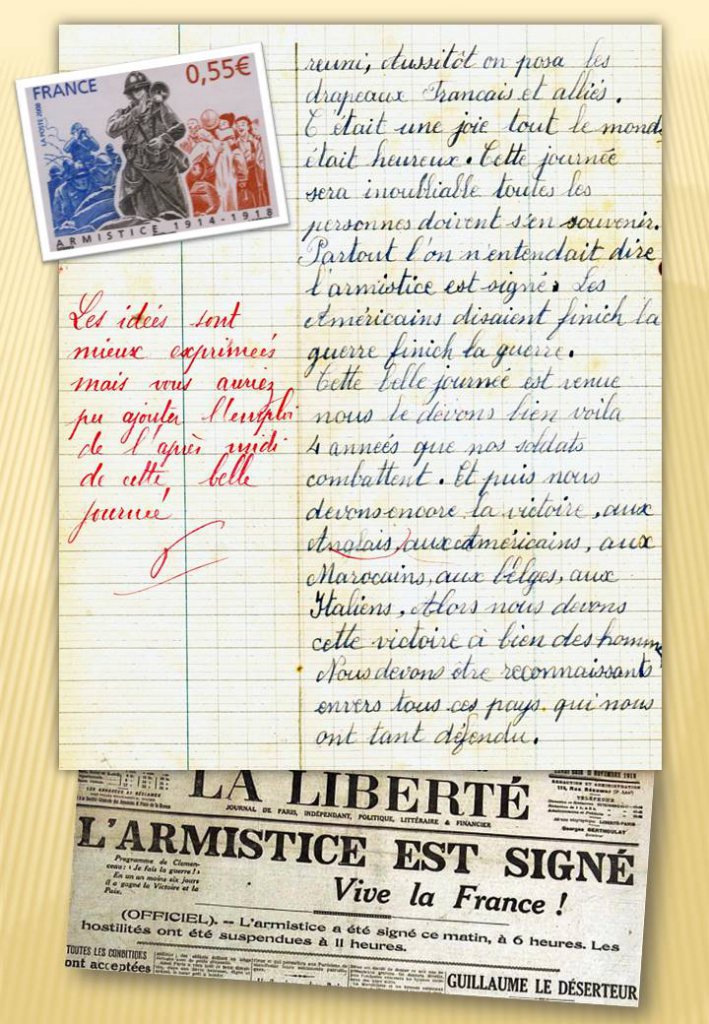 FRANCE
0,55€
LA POSTE 2008
ARMISTICE 1914-1918
reuni, Aussitôt on posa les
drapeaux Francais et alliés.
C'était une joie tout le monde
était heureux. Cette journée
sera inoubliable toutes les
personnes doivent s'en souvenir.
Partout l'on n'entendait dire
l'armistice est signé. Les
Américains disaient finich la
guerre finich la guerre.
Cette belle journée est venue
nous le devons bien voila
4 anneés que nos soldats
combattent. Et puis nous
devons encore la victoire, aux
Anglais, aux Américains, aux
Marocains, aux bélges, aux
Italiens, Alors nous devons
cette victoire à bien des homme
Nous devons être reconnaissants
envers tous ces pays qui nous
ont tant défendu.
Les idées sont
mieux exprimées
mais vous auriez
pu ajouter l'emploi
de l'après midi
de cette belle
journée
LA LIBERTÉ
JOURNAL DE PARIS, INDÉPENDANT, POLITIQUE, LITTÉRAIRE & FINANCIER
RÉDACTION ET ADMINISTRATION
TÉLÉPHONE
Georges BERTHOULAT
L'ARMISTICE EST SIGNÉ
Programme de Clemen-
ceau : « Je fais la guerre ! »
En un an moins six jours
il a gagné la Victoire et la
Paix.
Vive la France !
(OFFICIEL). — L'armistice a été signé ce matin, à 6 heures. Les
hostilités ont été suspendues à 11 heures.
TOUTES LES CONDITIONS
ont acceptées
GUILLAUME LE DÉSERTEUR